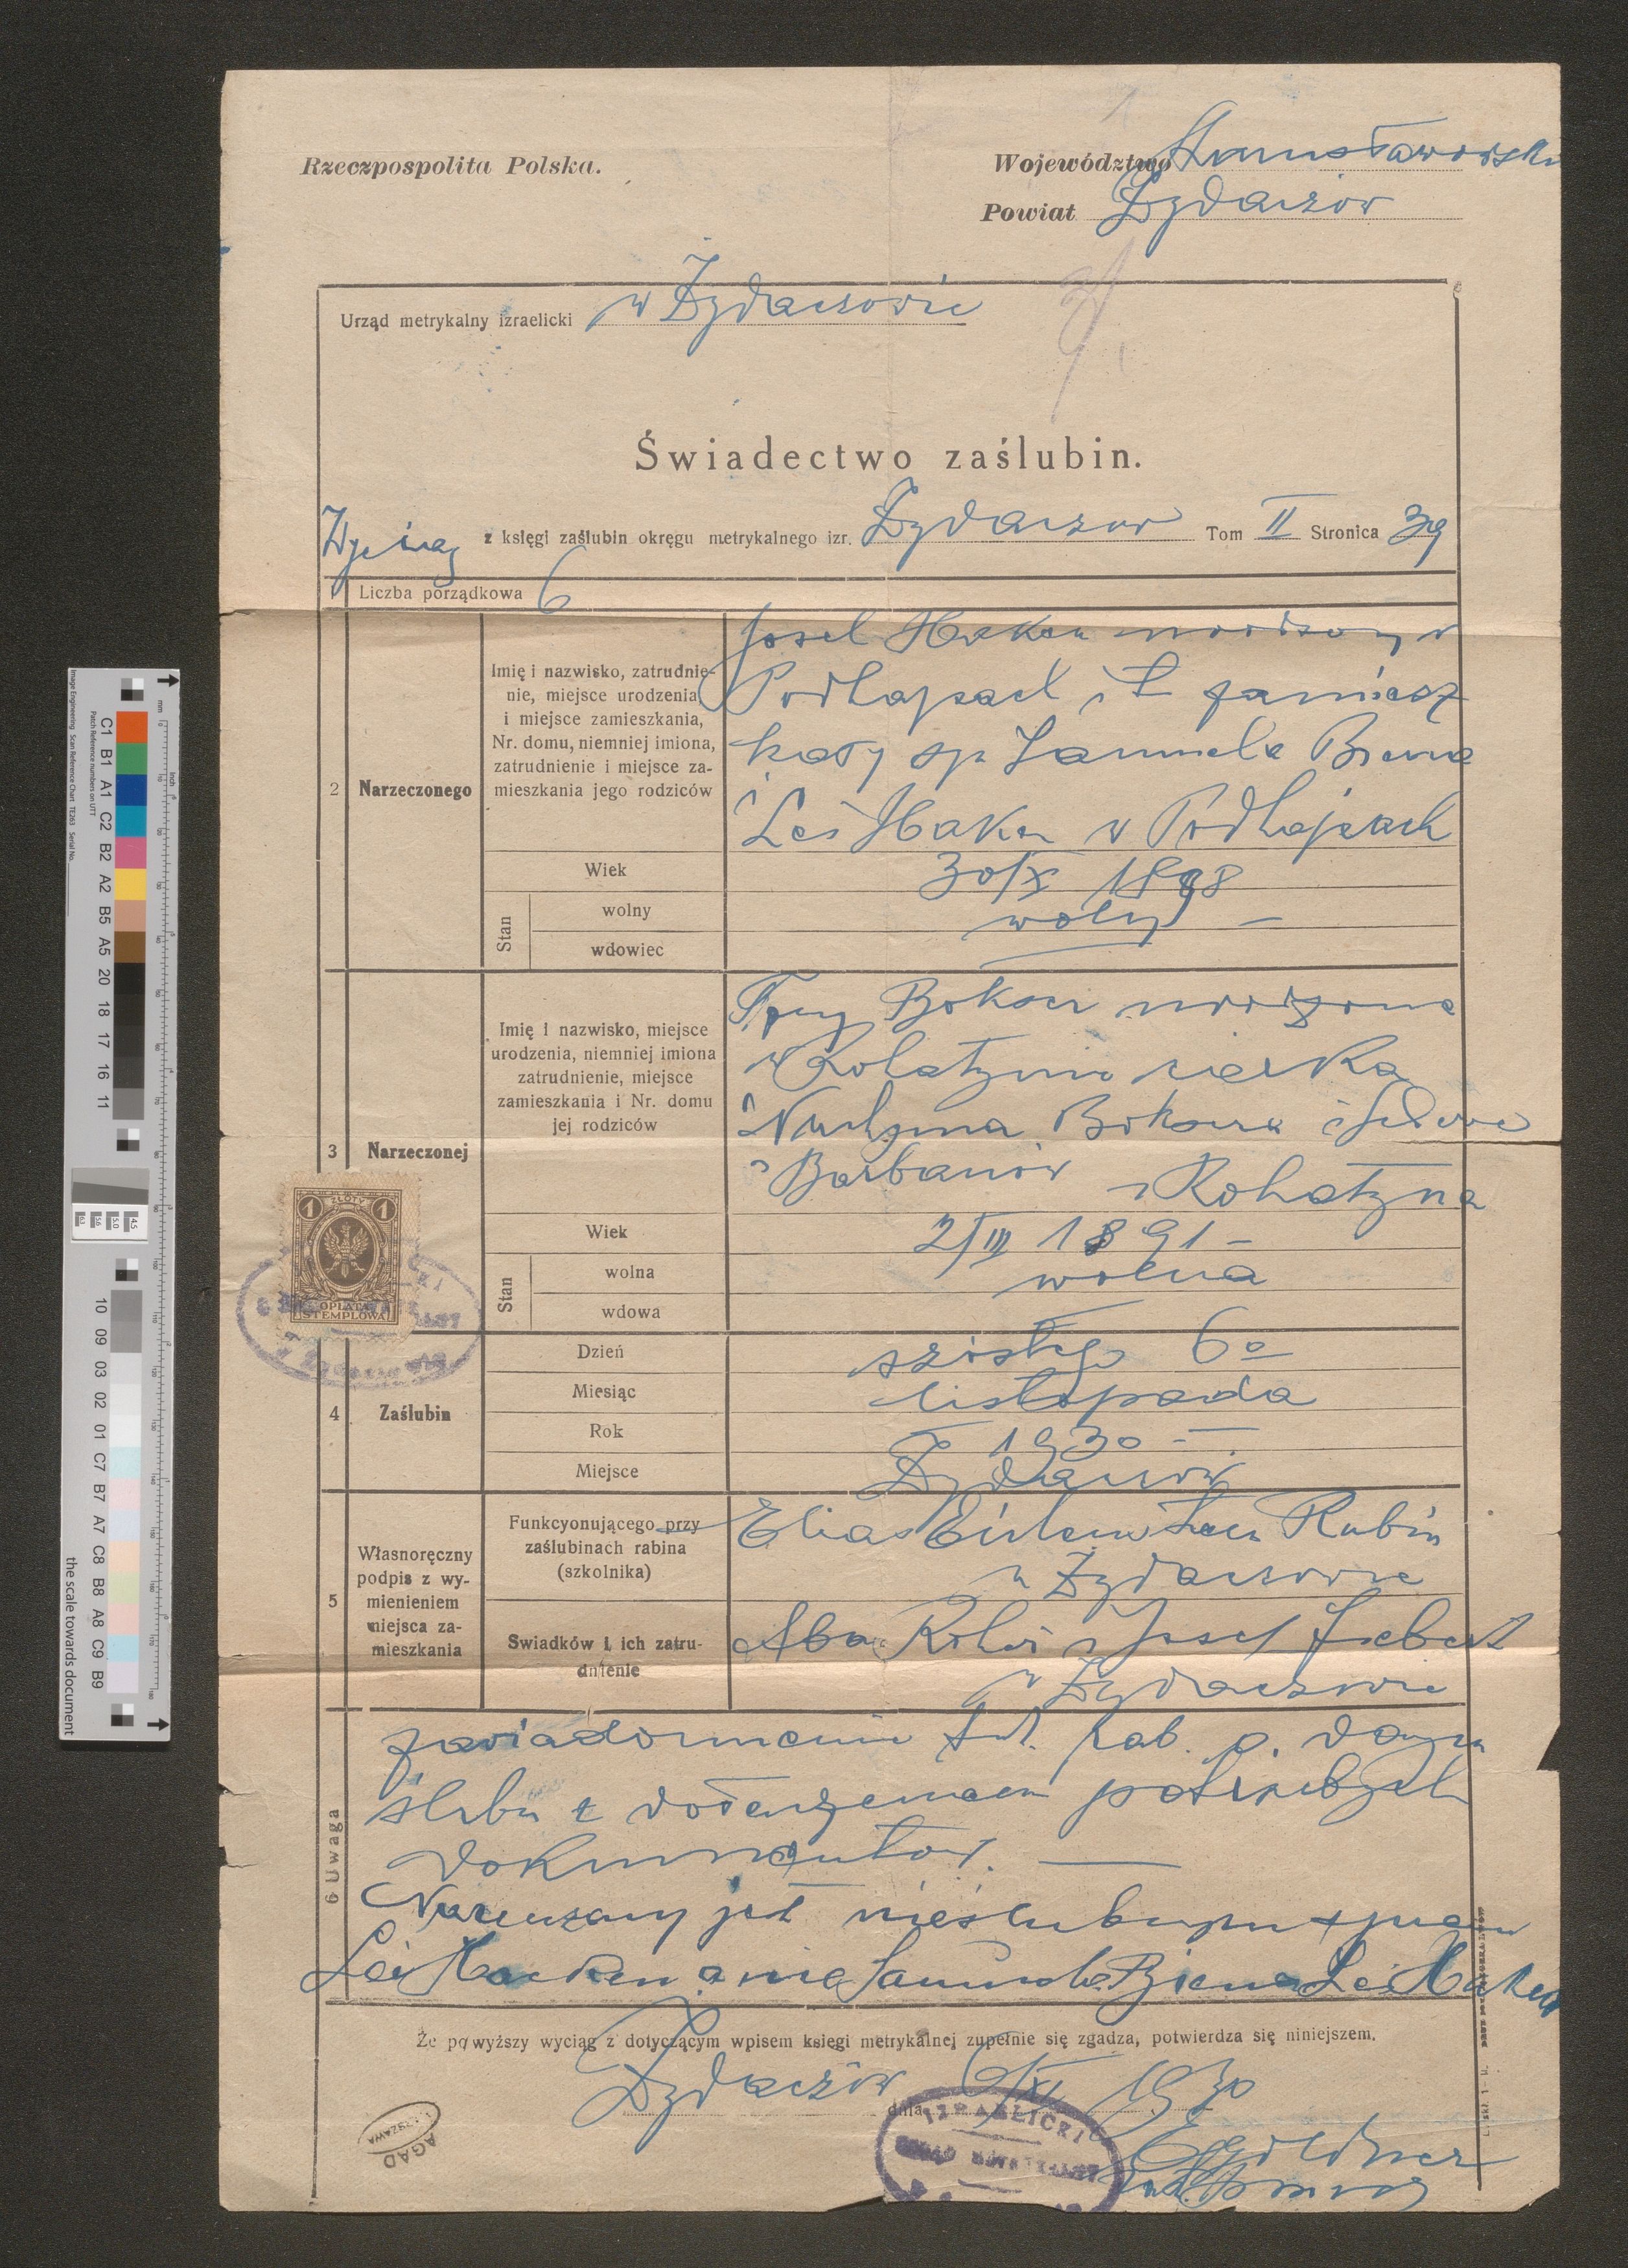 Rzeczpospolita Polska.
Województwo Stanisławowskie
Powiat Żydaczów
Urząd metrykalny izraelicki w Żydaczowie
Świadectwo zaślubin.
Wyciąg z księgi zaślubin okręgu metrykalnego izr. Żydaczow Tom II Stronica 39
1 Liczba porządkowa 6
2 Narzeczonego
Imię i nazwisko, zatrudnie-
nie, miejsce urodzenia
i miejsce zamieszkania,
Nr. domu, niemniej imiona,
zatrudnienie i miejsce za-
mieszkania jego rodziców
Josel Haken urodzony w
Podhajcach i zamiesz
kały Samuela Biena
i Lei Haken w Podhajcach
Wiek 30/X 1898
Stan
wolny wolny –
wdowiec
3 Narzeczonej
Imię i nazwisko, miejsce
urodzenia, niemniej imiona
zatrudnienie, miejsce
zamieszkania i Nr. domu
jej rodziców
Bokser urodzona
w Rohatynie córka
Nuchyma Boksera i
z Barbanów z Rohatyna
Wiek 2/III 1891 –
Stan
wolna wolna
wdowa
4 Zaślubin
Dzień szóstego 6o
Miesiąc listopada
Rok 1930 –
Miejsce Żydaczów
5 Własnoręczny
podpis z wy-
mienieniem
miejsca za-
mieszkania
Funkcyonującego przy
zaślubinach rabina
(szkolnika)
Elias Rabin
w Żydaczowie
Swiadków i ich zatru-
dnienie
Aba i Josef
w Żydaczowie
6 Uwaga
zawiadomienie rab. o
ślubu z dołączeniem potrzebnych
dokumentów. —
Narzeczony jest nieślubnym synem
Lei Hacken a nie Samuela Biena i Lei Haken
Że powyższy wyciąg z dotyczącym wpisem księgi metrykalnej zupełnie się zgadza, potwierdza się niniejszem.
Żydaczów dnia 6/XI 1930
1 ZŁOTY 1
OPŁATA
STEMPLOWA
IZRAELICKI
AGAD
WARSZAWA
the scale towards document
Image Engineering Scan Reference Chart TE263 Serial No.
Patch Reference numbers on UTT
C1 B1 A1 C2 B2 A2 B5 A5 20 18 17 16 11
10 09 03 02 01 C7 B7 A7 C8 B8 A8 C9 B9